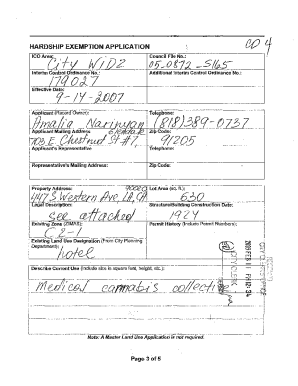 CD 4
HARDSHIP EXEMPTION APPLICATION
ICO Area: City WIDE
Council File No.: 05-0872-S165
Interim Control Ordinance No.: 179027
Additional Interim Control Ordinance No.:
Effective Date: 9-14-2007
Applicant (Record Owner): Amalia Narinyan
Telephone: (818)389-0737
Applicant Mailing Address
703 E. Chestnut St #7,
Zip Code: 91205
Applicant's Representative
Telephone:
Representative's Mailing Address:
Zip Code:
Property Address:
447 S Western Ave, LA, CA
Lot Area (sq. ft.): 630
Legal Description: See attached
Structure/Building Construction Date: 1924
Existing Zone (ZIMAS): C2-1
Permit History (Include Permit Numbers):
Existing Land Use Designation (From City Planning Department):
hotel
CITY CLERK
Describe Current Use (Include size in square foot, height, etc.):
medical cannabis collective
Note: A Master Land Use Application is not required.
Page 3 of 5